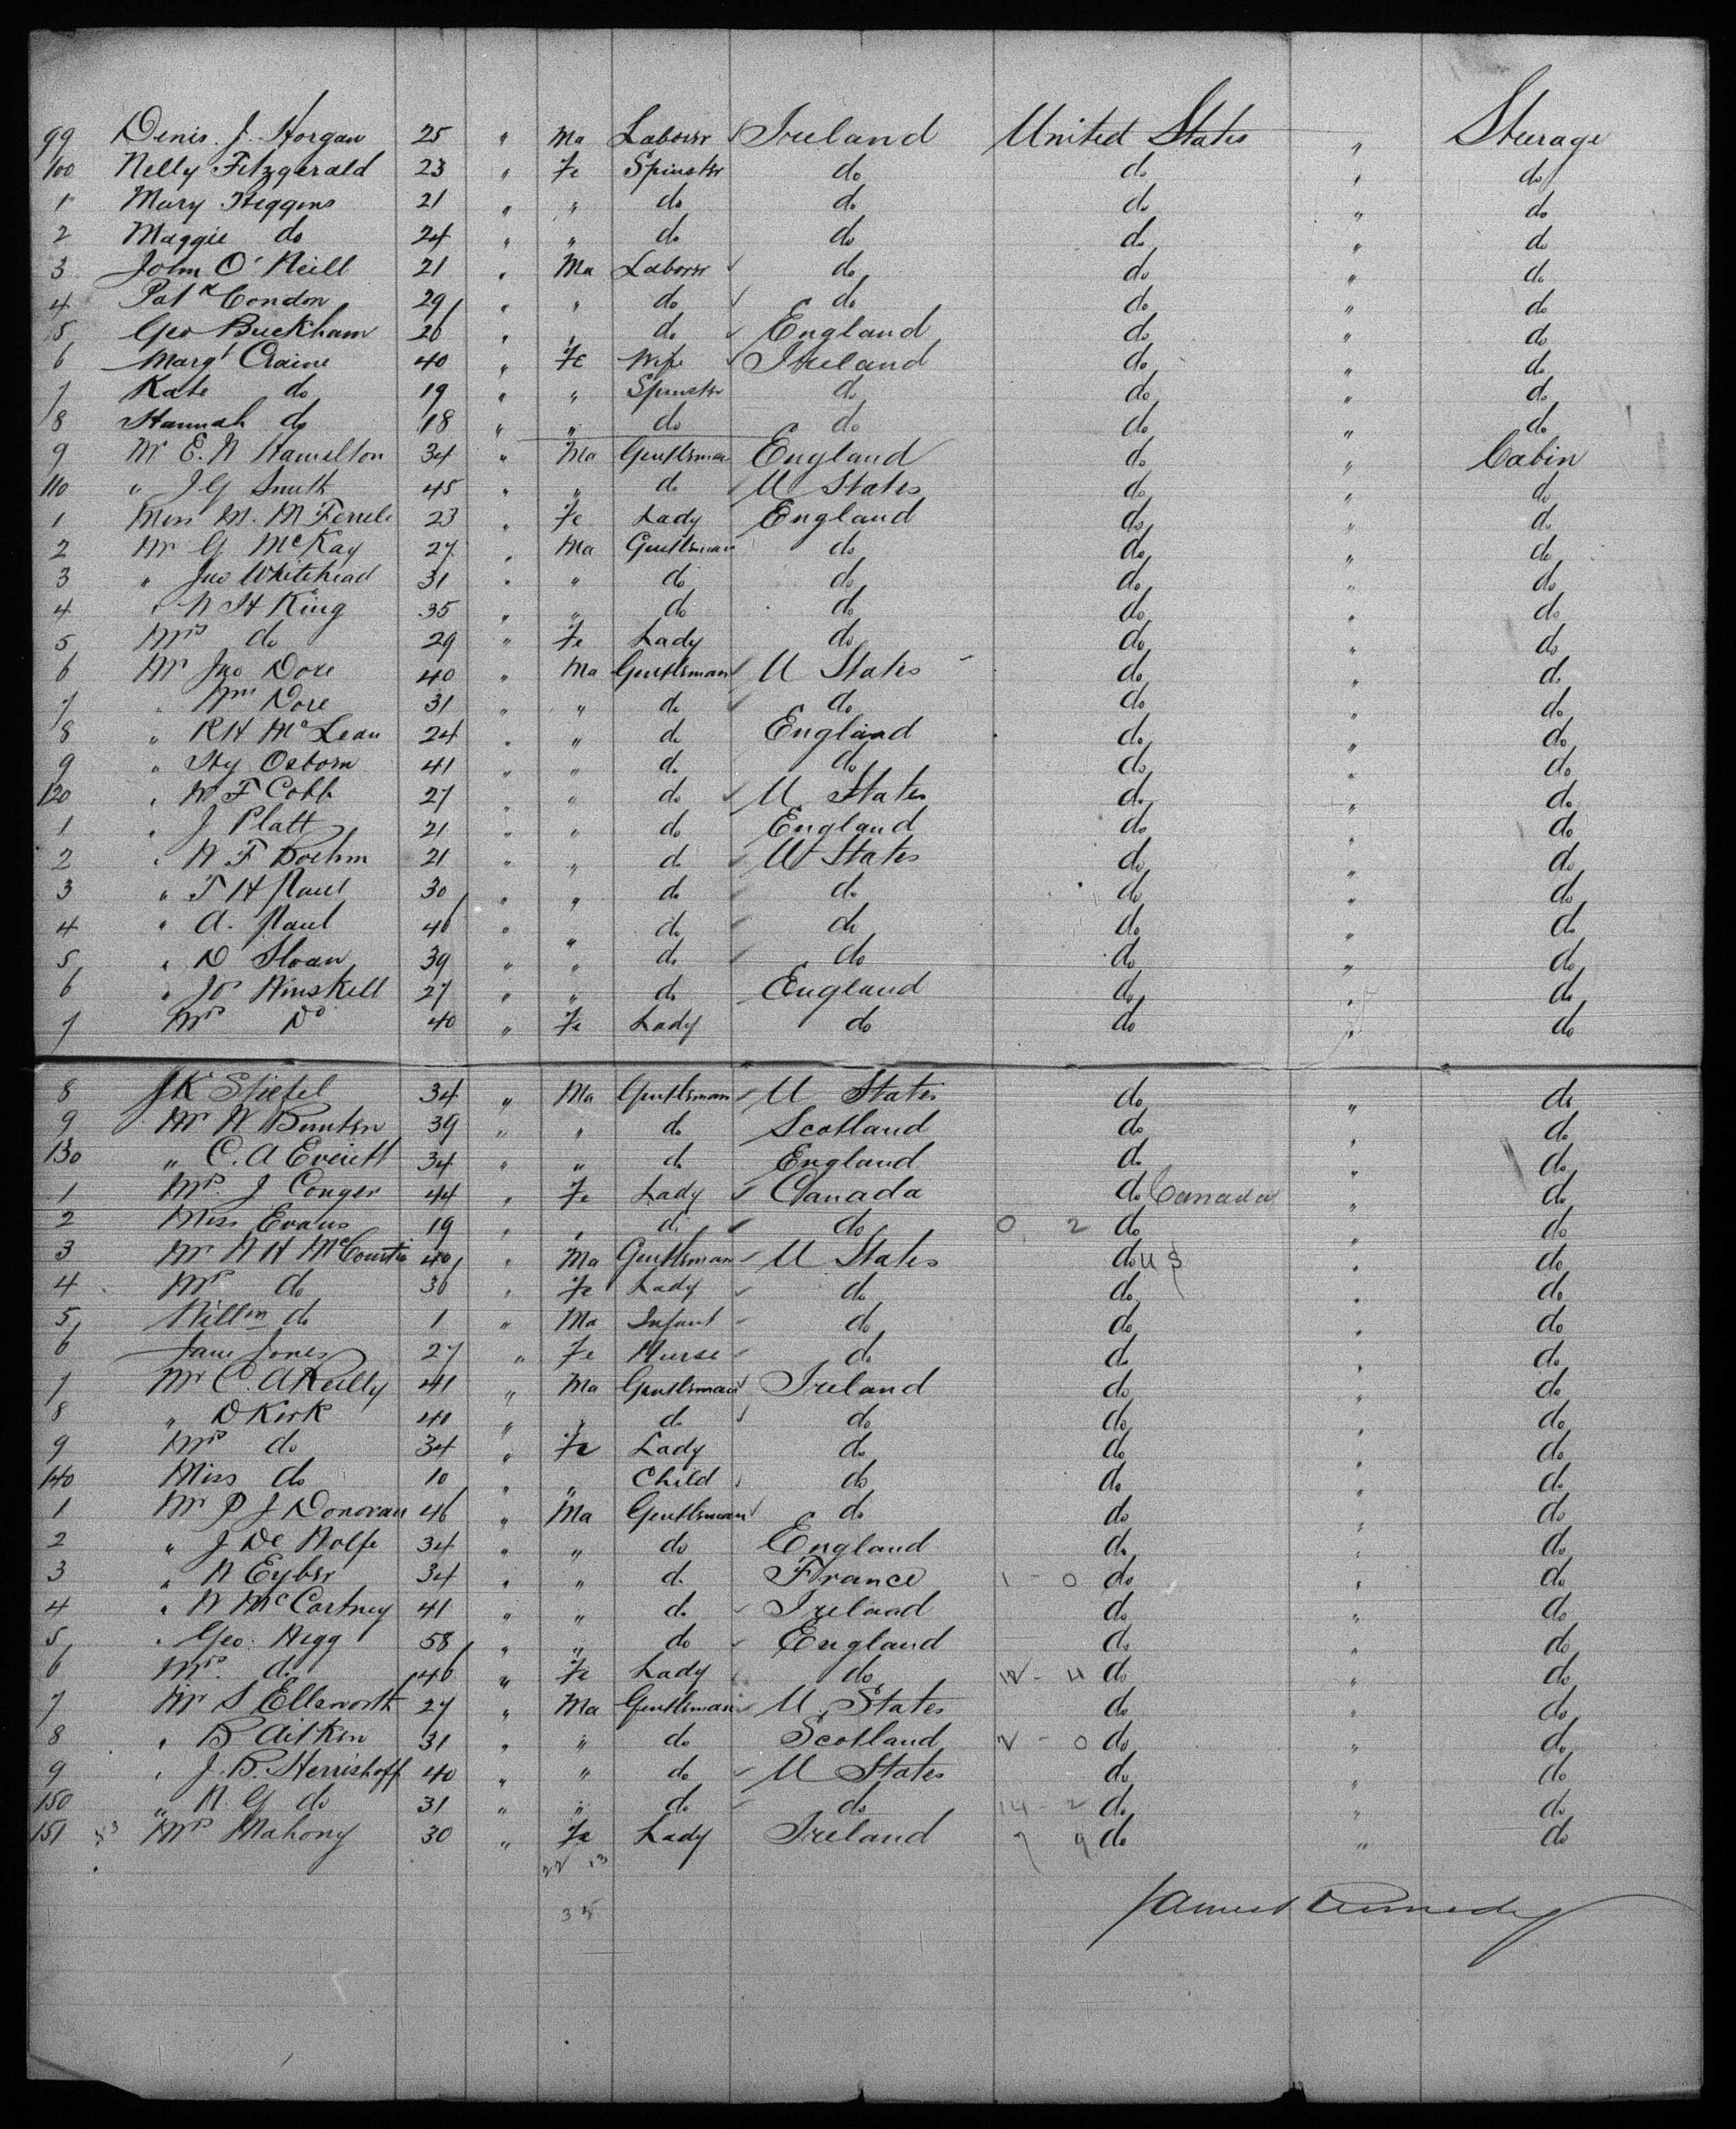 99 Denis J. Horgan 25 " Ma Laborer Ireland United States " Steerage
100 Nelly Fitzgerald 23 " Fe Spinster do do " do
1 Mary Higgins 21 " " do do do " do
2 Maggie do 24 " " do do do " do
3 John O'Neill 21 " Ma Laborer do do " do
4 Patk Condon 29 " " do do do " do
5 Geo Buckham 26 " " do England do " do
6 Margt Craine 40 " Fe Wife Ireland do " do
7 Kate do 19 " " Spinster do do " do
8 Hannah do 18 " " do do do " do
9 Mr E. W Hamilton 34 " Ma Gentleman England do " Cabin
110 " J G Smith 45 " " do U States do " do
1 Miss M. M 23 " Fe Lady England do " do
2 Mr G McKay 27 " Ma Gentleman do do " do
3 " Jno Whitehead 31 " " do do do " do
4 " W H King 35 " " do do do " do
5 Mrs do 29 " Fe Lady do do " do
6 Mr Jno Dore 40 " Ma Gentleman U States do " do
7 " Wm Dore 31 " " do do do " do
8 " R H McLean 24 " " do England do " do
9 " Hy Osborn 41 " " do do do " do
120 " W F Cobb 27 " " do U States do " do
1 " J Platt 21 " " do England do " do
2 " W F Boehm 21 " " do U States do " do
3 " T H Paul 30 " " do do do " do
4 " A. Paul 46 " " do do do " do
5 " D Sloan 39 " " do do do " do
6 " Jos Winskell 27 " " do England do " do
7 Mrs Do 40 " Fe Lady do do " do
8 J K Stiefel 34 " Ma Gentleman U States do " do
9 Mr W Bunten 39 " " do Scotland do " do
130 " C. A Everett 34 " " do England do " do
1 Mrs. J Conger 44 " Fe Lady Canada do Canada " do
2 Miss Evans 19 " " do do 0 2 do " do
3 Mr W H 40 " Ma Gentleman U States do U S " do
4 Mrs do 36 " Fe Lady do do " do
5 Willm do 1 " Ma Infant do do " do
6 Jane Jones 27 " Fe Nurse do do " do
7 Mr C. A Reilly 41 " Ma Gentleman Ireland do " do
8 " D Kirk 40 " " do do do " do
9 Mrs do 34 " Fe Lady do do " do
140 Miss do 10 " " Child do do " do
1 Mr P J Donovan 46 " Ma Gentleman do do " do
2 " J De Wolfe 34 " " do England do " do
3 " W Eyber 34 " " do France 1 - 0 do " do
4 " W McCartney 41 " " do Ireland do " do
5 " Geo. Hegg 58 " " do England do " do
6 Mrs. do 46 " Fe Lady do do " do
7 Mr S Ellsworth 27 " Ma Gentleman U States do " do
8 " B Aitken 31 " " do Scotland 2 - 0 do " do
9 " J. B. Herrishoff 40 " " do U States do " do
150 " N. G do 31 " " do do 14 - 2 do " do
151 Mrs Mahony 30 " Fe Lady Ireland 9 do " do
22 13
35
James Kennedy